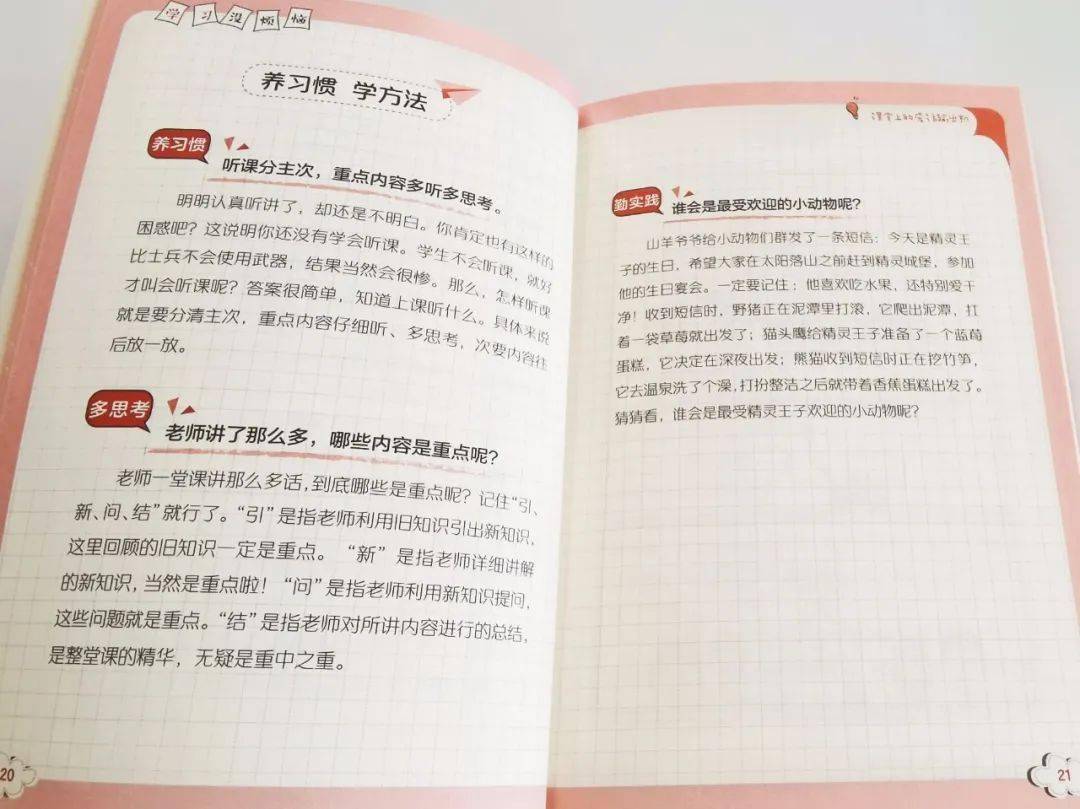 学习没烦恼
养习惯 学方法
养习惯
听课分主次，重点内容多听多思考。
明明认真听讲了，却还是不明白。你肯定也有这样的
困惑吧？这说明你还没有学会听课。学生不会听课，就好
比士兵不会使用武器，结果当然会很惨。那么，怎样听课
才叫会听课呢？答案很简单，知道上课听什么。具体来说
就是要分清主次，重点内容仔细听、多思考，次要内容往
后放一放。
多思考
老师讲了那么多，哪些内容是重点呢？
老师一堂课讲那么多话，到底哪些是重点呢？记住“引、
新、问、结”就行了。“引”是指老师利用旧知识引出新知识，
这里回顾的旧知识一定是重点。“新”是指老师详细讲解
的新知识，当然是重点啦！“问”是指老师利用新知识提问，
这些问题就是重点。“结”是指老师对所讲内容进行的总结，
是整堂课的精华，无疑是重中之重。
20
课堂上的
勤实践
谁会是最受欢迎的小动物呢？
山羊爷爷给小动物们群发了一条短信：今天是精灵王
子的生日，希望大家在太阳落山之前赶到精灵城堡，参加
他的生日宴会。一定要记住：他喜欢吃水果，还特别爱干
净！收到短信时，野猪正在泥潭里打滚，它爬出泥潭，扛
着一袋草莓就出发了；猫头鹰给精灵王子准备了一个蓝莓
蛋糕，它决定在深夜出发；熊猫收到短信时正在挖竹笋，
它去温泉洗了个澡，打扮整洁之后就带着香蕉蛋糕出发了。
猜猜看，谁会是最受精灵王子欢迎的小动物呢？
21